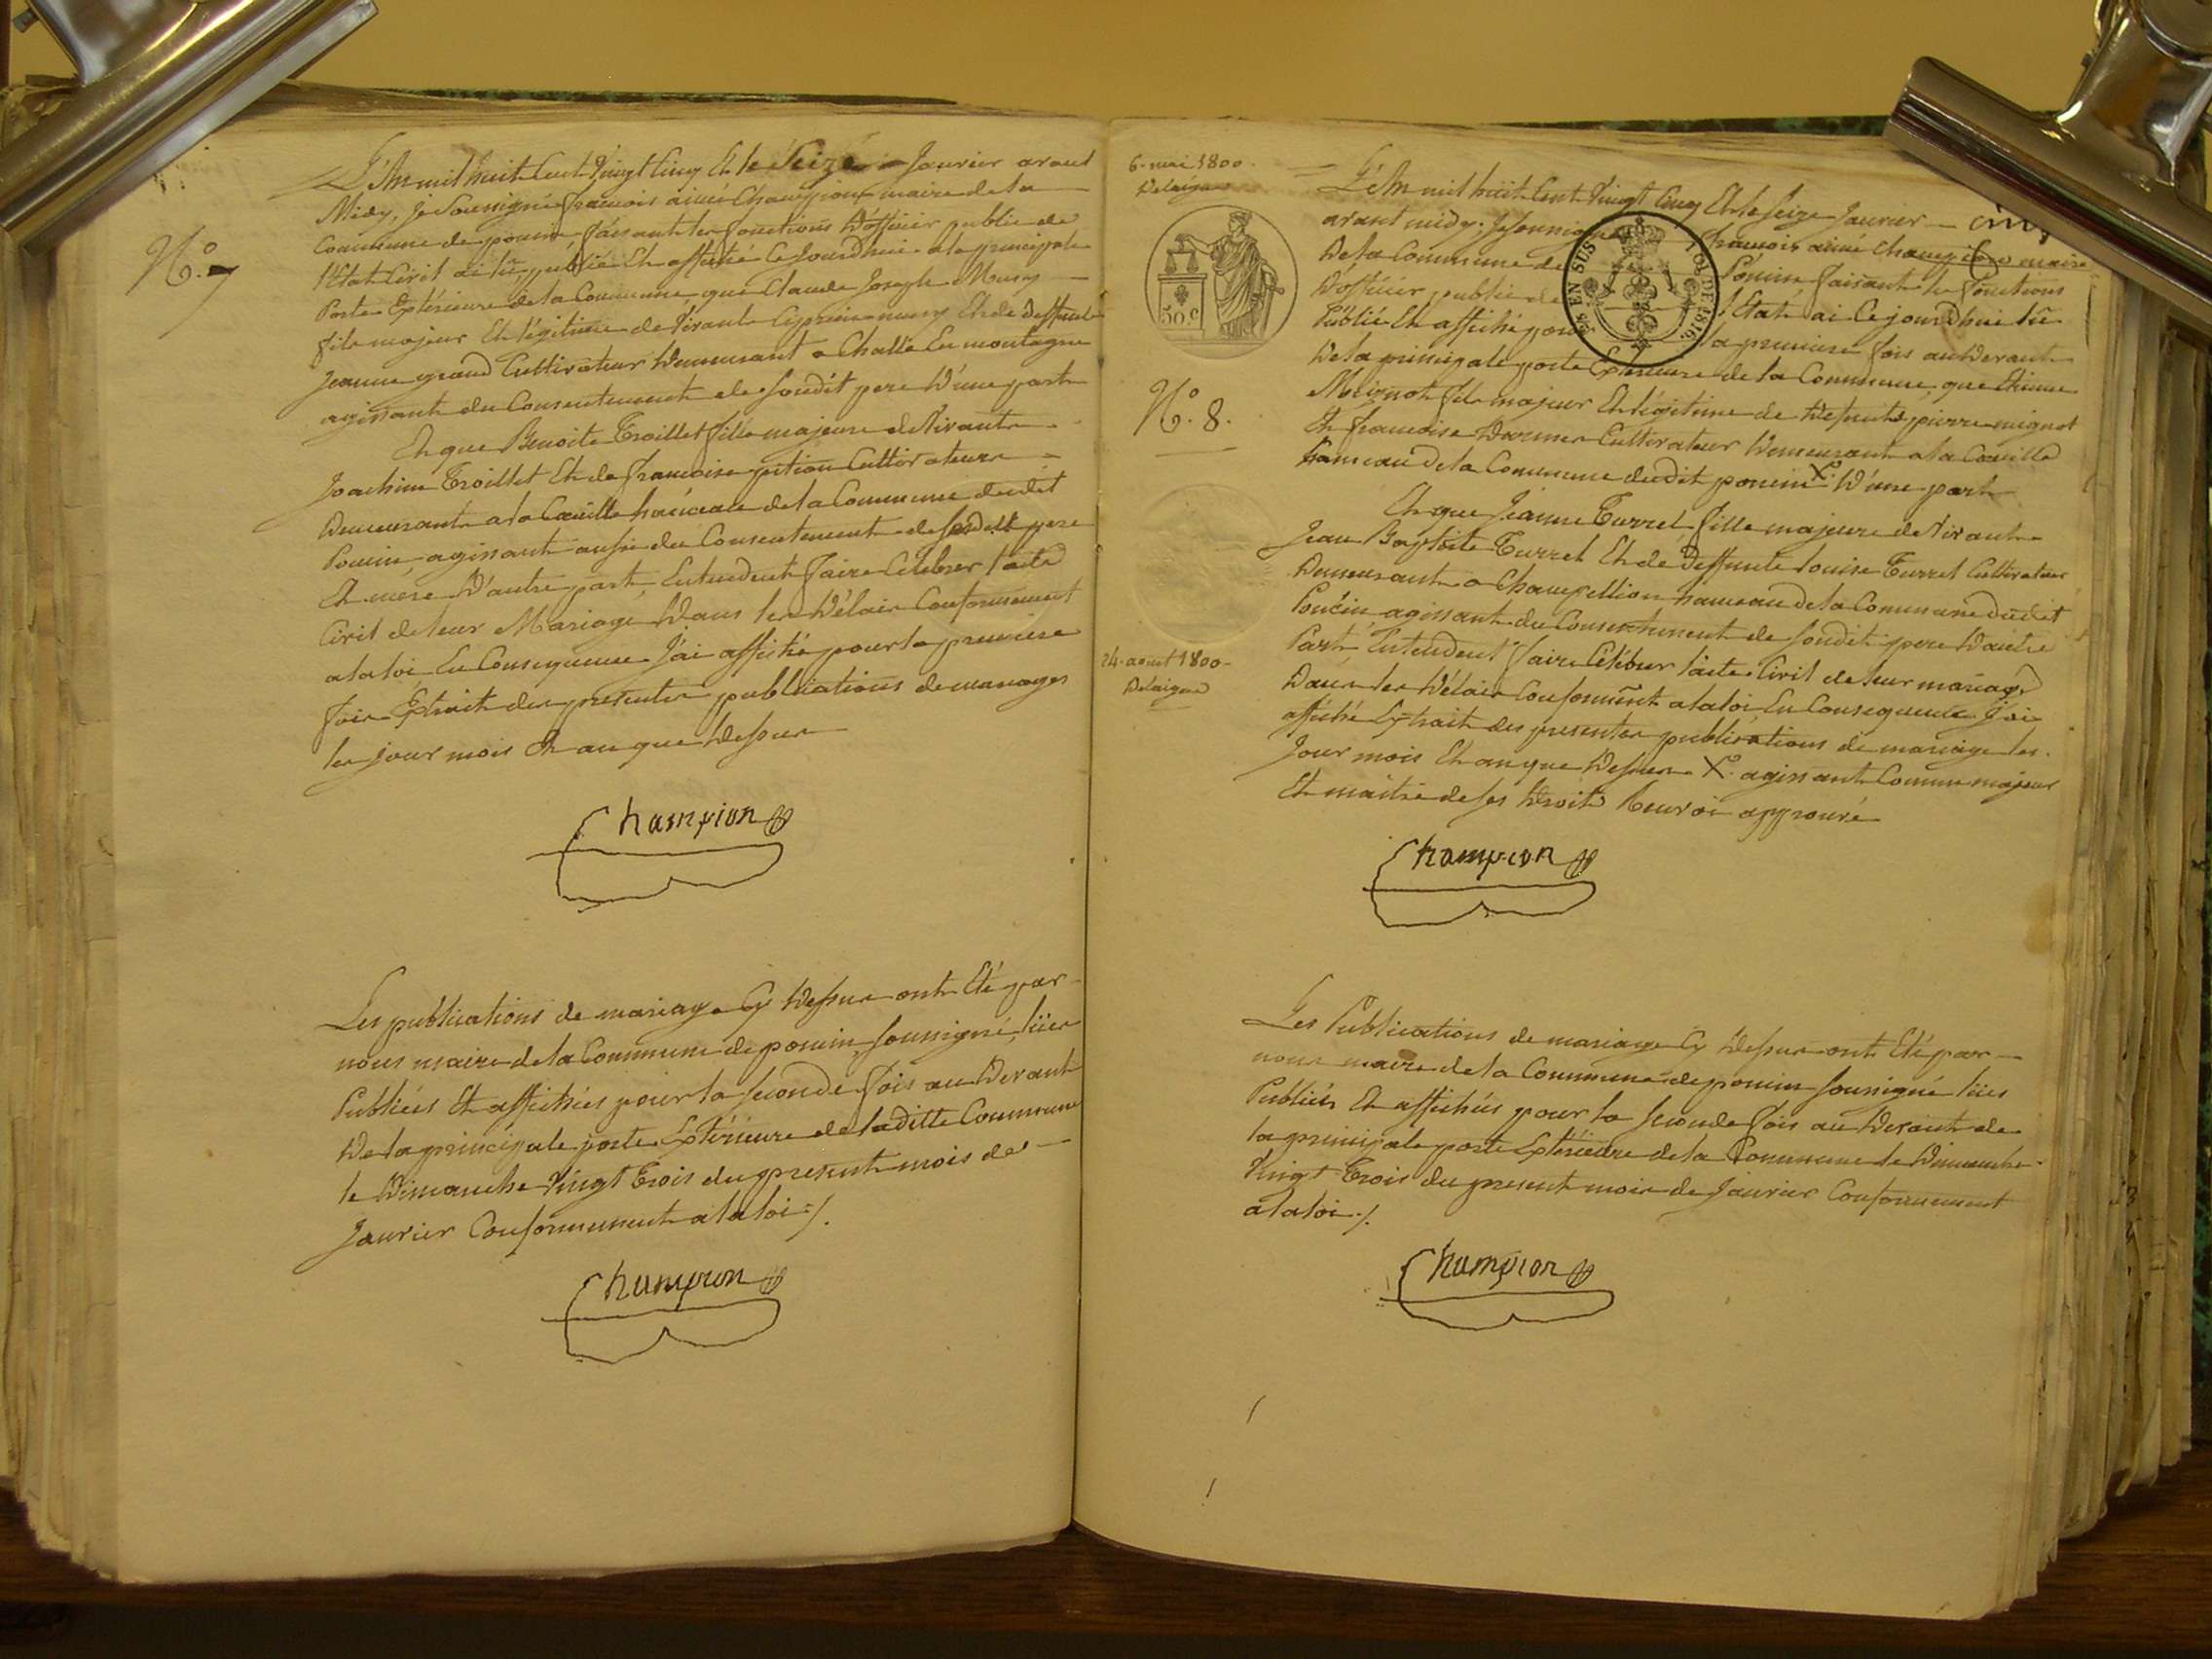 N.º 7
L'An mil huit Cent Vingt Cinq Et le Seize Janvier avant
Midy, je Soussigné françois aimé Champion maire de la
Commune de poncin, faisant les fonctions d'officier public de
l'Etat Civil ai lû, publié Et affiché Ce jourdhui a la principale
Porte Extérieure de la Commune que Claude Joseph Musy
fils majeur Et légitime de Vivant Ciprien musy Et de deffunte
jeanne grand Cultivateur demeurant a Challe La montagne
agissant du Consentement de sondit pere D'une part
Et que Benoite Troillet fille majeure de Vivants
Joachim Troillet Et de françoise Cultivateurs
demeurant a la Caüille hameau de la Commune dudit
Poncin, agissant aussi du Consentement de sesdits pere
Et mere D'autre part, Entendent faire Célébrer l'acte
Civil de leur Mariage dans les délais Conformément
a la loi En Consequence j'ai affiché pour la premiere
fois Extrait des presentes publications de mariages
les jour mois Et an que dessus
Champion
Les publications de mariage Cy dessus ont Eté par
nous maire de la Commune de poncin, soussigné, lües
Publiées Et affichées pour la seconde fois au devant
De la principale porte Extérieure de la ditte Commune
le Dimanche Vingt trois du present mois de
Janvier Conformement a la loi ./.
Champion
6. mai 1800.
Delaigue
50. c
N.º 8.
24. aout 1800.
Delaigue
cinq
L'An mil huit Cent Vingt Cinq Et le seize Janvier
avant midy. Je soussigné françois aimé Champion maire
De la Commune de Poncin faisant les fonctions
D'officier public de l'Etat ai Ce jourdhui lû
EN SUS LOI DE 1816.
Publié Et affiché pour la premiere fois au devant
De la principale porte Extérieure de la Commune, que Etienne
Mignot fils majeur Et légitime de defunts pierre mignot
Et francoise Cultivateur demeurant a la Caüille
hameau de la Commune dudit poncin Xº. D'une part
Et que Jeanne Turrel fille majeure de Vivant
Jean Baptiste Turrel Et de deffunte louise Turrel Cultivateur
Demeurant a Champeillion hameau de la Commune dudit
Poncin, agissant du Consentement de sondit pere D'autre
Part, Entendent faire Célébrer l'acte Civil de leur mariage
Dans les délais Conforment a la loi En Consequence j'ai
affiché Extrait des presentes publications de mariage les
Jour mois Et an que dessus. Xº. agissant Comme majeur
Et maitre de ses droits Renvoi approuvé
Champion
Les Publications de mariage Cy dessus ont Eté par
nous maire de la Commune de poncin soussigné lües
Publiées Et affichées pour la seconde fois au devant de
la principale porte Extérieure de la Commune le Dimanche
Vingt trois du present mois de Janvier Conformement
a la loi ./.
Champion